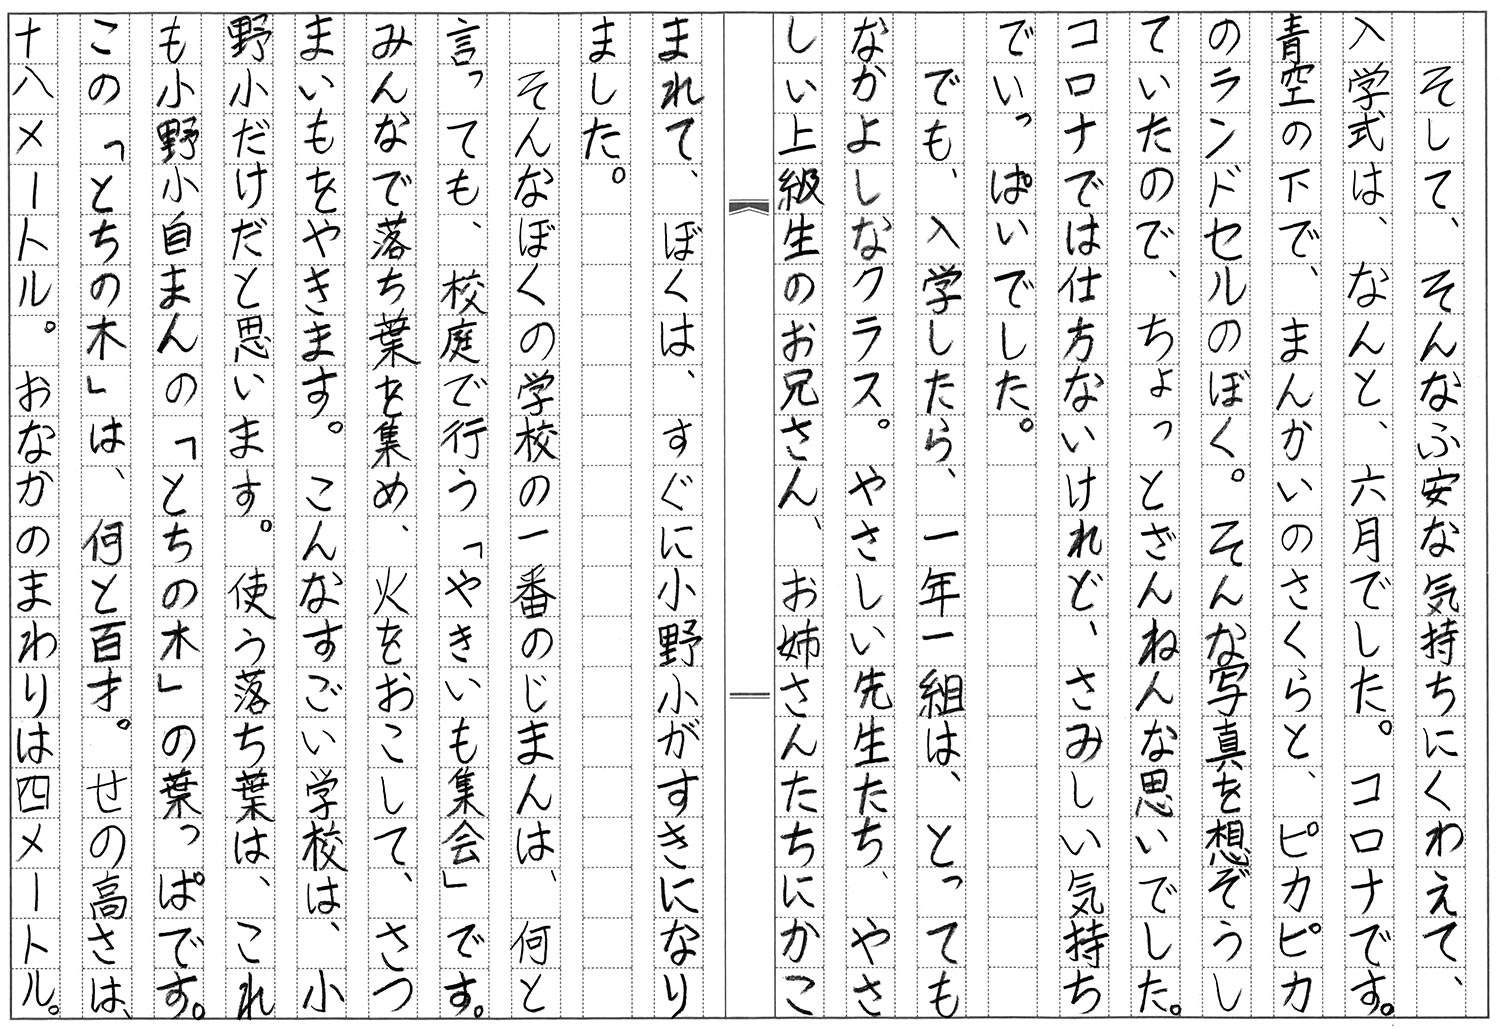 そして、そんなふ安な気持ちにくわえて、
入学式は、なんと、六月でした。コロナです。
青空の下で、まんかいのさくらと、ピカピカ
のランドセルのぼく。そんな写真を想ぞうし
ていたので、ちょっとざんねんな思いでした。
コロナでは仕方ないけれど、さみしい気持ち
でいっぱいでした。
でも、入学したら、一年一組は、とっても
なかよしなクラス。やさしい先生たち、やさ
しい上級生のお兄さん、お姉さんたちにかこ
まれて、ぼくは、すぐに小野小がすきになり
ました。
そんなぼくの学校の一番のじまんは、何と
言っても、校庭で行う「やきいも集会」です。
みんなで落ち葉を集め、火をおこして、さつ
まいもをやきます。こんなすごい学校は、小
野小だけだと思います。使う落ち葉は、これ
も小野小自まんの「とちの木」の葉っぱです。
この「とちの木」は、何と百才。せの高さは、
十八メートル。おなかのまわりは四メートル。